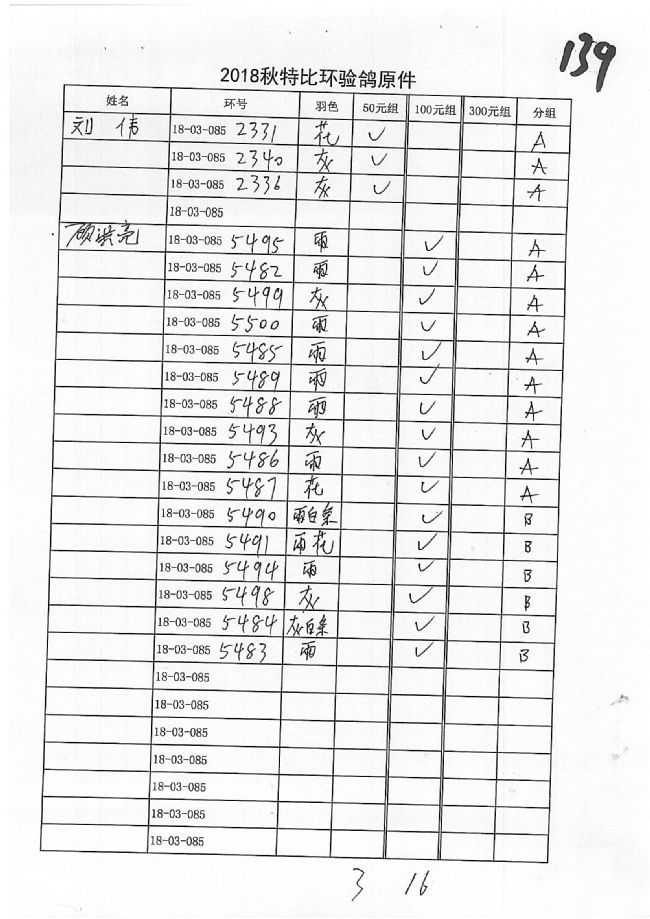 139
2018秋特比环验鸽原件
姓名 环号 羽色 50元组 100元组 300元组 分组
刘伟 18-03-085 2331 花 ✓ A
18-03-085 2340 灰 ✓ A
18-03-085 2336 灰 ✓ A
18-03-085
顾洪亮 18-03-085 5495 雨 ✓ A
18-03-085 5482 雨 ✓ A
18-03-085 5499 灰 ✓ A
18-03-085 5500 雨 ✓ A
18-03-085 5485 雨 ✓ A
18-03-085 5489 雨 ✓ A
18-03-085 5488 雨 ✓ A
18-03-085 5493 灰 ✓ A
18-03-085 5486 雨 ✓ A
18-03-085 5487 花 ✓ A
18-03-085 5490 雨白条 ✓ B
18-03-085 5491 雨花 ✓ B
18-03-085 5494 雨 ✓ B
18-03-085 5498 灰 ✓ B
18-03-085 5484 灰白条 ✓ B
18-03-085 5483 雨 ✓ B
18-03-085
18-03-085
18-03-085
18-03-085
18-03-085
18-03-085
18-03-085
3 16